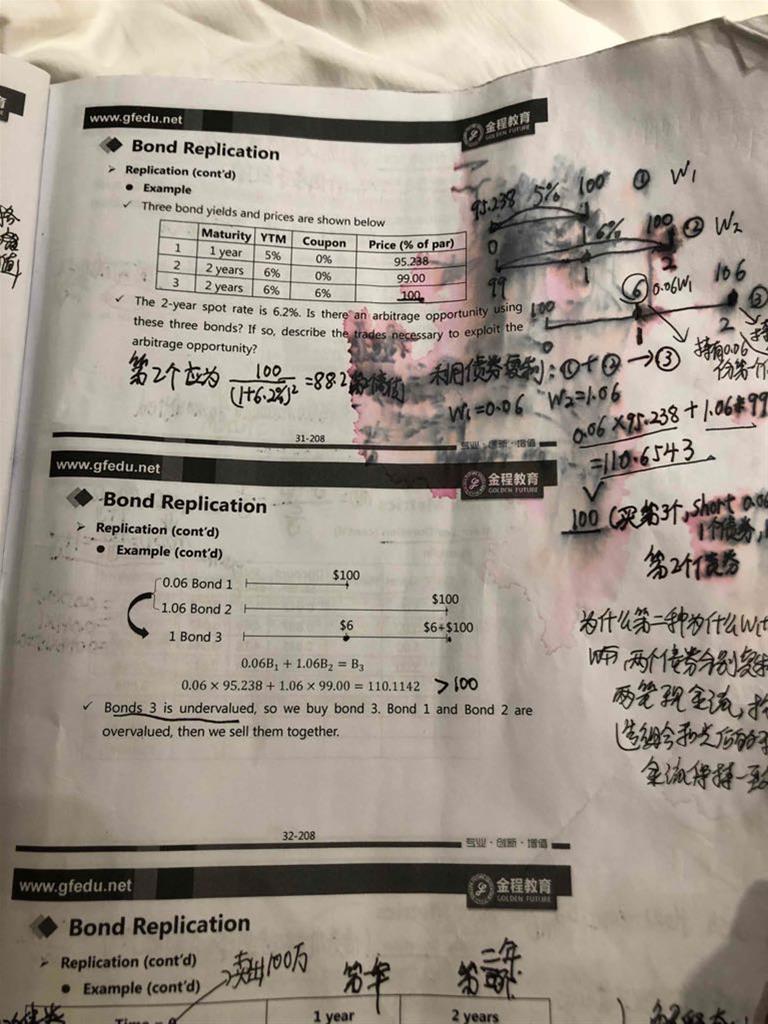 www.gfedu.net
金程教育
GOLDEN FUTURE
Bond Replication
Replication (cont'd)
Example
Three bond yields and prices are shown below
Maturity YTM Coupon Price (% of par)
1 1 year 5% 0% 95.238
2 2 years 6% 0% 99.00
3 2 years 6% 6% 100
The 2-year spot rate is 6.2%. Is there an arbitrage opportunity using
these three bonds? If so, describe the trades necessary to exploit the
arbitrage opportunity?
95.238 5% 100 ① W1
0 1 6% 100 ② W2
99 1 2
100 ⑥ 0.06W1 106 ③
0 1 2
持有0.06
份第一个
第2个应为 100/(1+6.2%)² = 88.2
利用债券复制：①+②→③
W1=0.06 W2=1.06
0.06×95.238+1.06*99
=110.6543
100 (买第3个, short 0.06
1个债券,
第2个债券
31-208
专业·创新·增值
www.gfedu.net
金程教育
GOLDEN FUTURE
Bond Replication
Replication (cont'd)
Example (cont'd)
0.06 Bond 1 $100
1.06 Bond 2 $100
1 Bond 3 $6 $6+$100
0.06B₁ + 1.06B₂ = B₃
0.06 × 95.238 + 1.06 × 99.00 = 110.1142 >100
Bonds 3 is undervalued, so we buy bond 3. Bond 1 and Bond 2 are
overvalued, then we sell them together.
为什么第二种为什么W1
两个债券分别复制
两笔现金流,
造组合和先后的
金流保持一致
32-208
专业·创新·增值
www.gfedu.net
金程教育
GOLDEN FUTURE
Bond Replication
Replication (cont'd)
卖出100万
第一年
第二年
Example (cont'd)
Time = 0 1 year 2 years